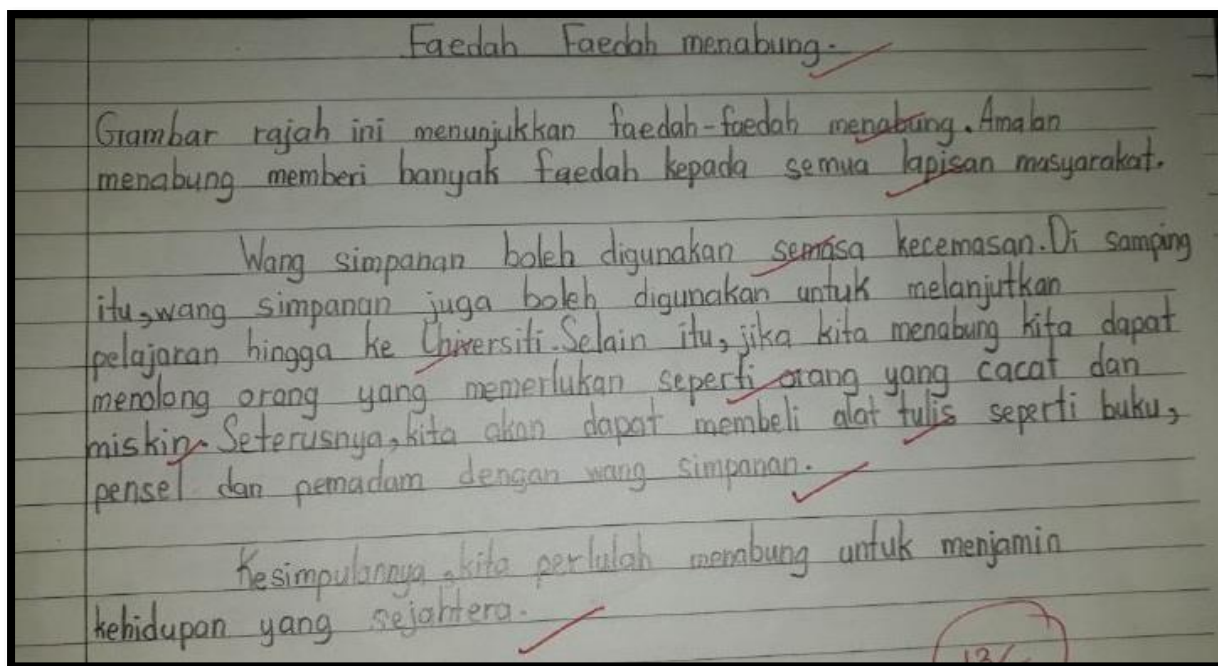 Faedah Faedah menabung.
Gambar rajah ini menunjukkan faedah-faedah menabung. Amalan
menabung memberi banyak faedah kepada semua lapisan masyarakat.
Wang simpanan boleh digunakan semasa kecemasan. Di samping
itu, wang simpanan juga boleh digunakan untuk melanjutkan
pelajaran hingga ke Universiti. Selain itu, jika kita menabung kita dapat
menolong orang yang memerlukan seperti orang yang cacat dan
miskin. Seterusnya, kita akan dapat membeli alat tulis seperti buku,
pensel dan pemadam dengan wang simpanan.
Kesimpulannya, kita perlulah menabung untuk menjamin
kehidupan yang sejahtera.